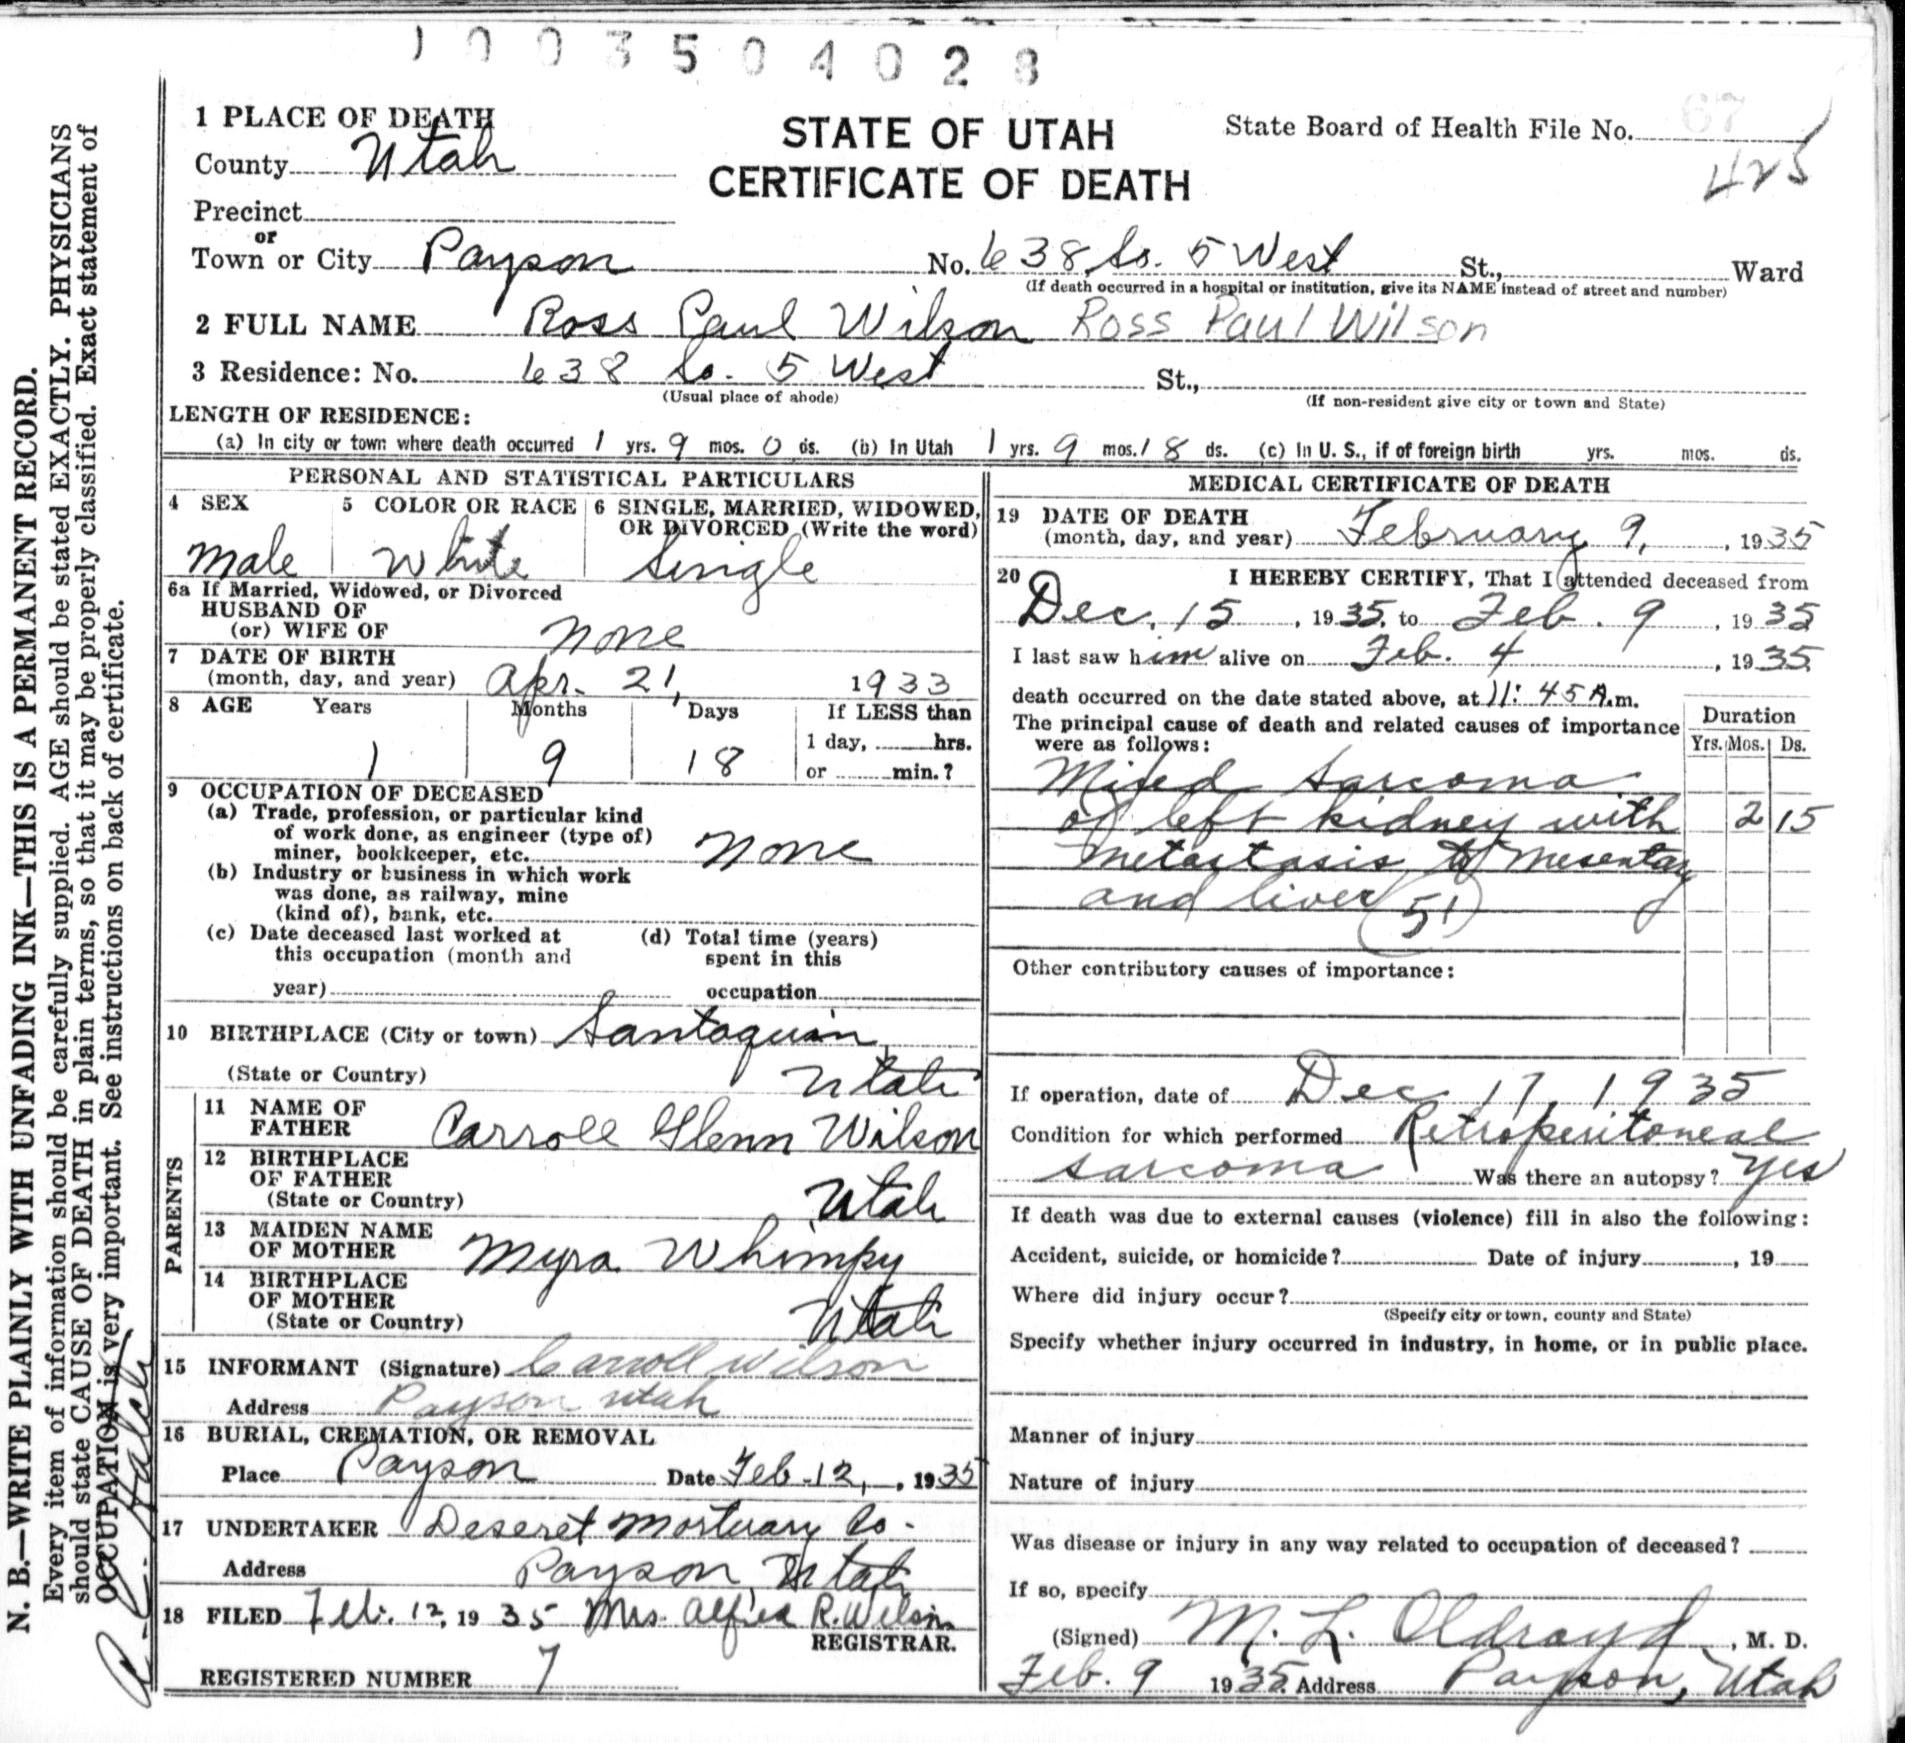 1003504028
1 PLACE OF DEATH
STATE OF UTAH
CERTIFICATE OF DEATH
State Board of Health File No. 67
425
County Utah
Precinct
or
Town or City Payson No. 638 So. 5 West St., Ward
(If death occurred in a hospital or institution, give its NAME instead of street and number)
2 FULL NAME Ross Paul Wilson Ross Paul Wilson
3 Residence: No. 638 So. 5 West St.,
(Usual place of abode) (If non-resident give city or town and State)
LENGTH OF RESIDENCE:
(a) In city or town where death occurred 1 yrs. 9 mos. 0 ds. (b) In Utah 1 yrs. 9 mos. 18 ds. (c) In U. S., if of foreign birth yrs. mos. ds.
PERSONAL AND STATISTICAL PARTICULARS
4 SEX 5 COLOR OR RACE 6 SINGLE, MARRIED, WIDOWED,
OR DIVORCED (Write the word)
Male White Single
6a If Married, Widowed, or Divorced
HUSBAND OF
(or) WIFE OF None
7 DATE OF BIRTH
(month, day, and year) Apr. 21, 1933
8 AGE Years Months Days If LESS than
1 day, hrs.
1 9 18 or min.?
9 OCCUPATION OF DECEASED
(a) Trade, profession, or particular kind
of work done, as engineer (type of)
miner, bookkeeper, etc. None
(b) Industry or business in which work
was done, as railway, mine
(kind of), bank, etc.
(c) Date deceased last worked at (d) Total time (years)
this occupation (month and spent in this
year) occupation
10 BIRTHPLACE (City or town) Santaquin,
(State or Country) Utah
PARENTS
11 NAME OF
FATHER Carroll Glenn Wilson
12 BIRTHPLACE
OF FATHER
(State or Country) Utah
13 MAIDEN NAME
OF MOTHER Myra Whimpy
14 BIRTHPLACE
OF MOTHER
(State or Country) Utah
15 INFORMANT (Signature) Carroll Wilson
Address Payson Utah
16 BURIAL, CREMATION, OR REMOVAL
Place Payson Date Feb-12, , 1935
17 UNDERTAKER Deseret Mortuary Co-
Address Payson, Utah
18 FILED Feb. 12, 1935 Mrs. R. Wilson
REGISTRAR.
REGISTERED NUMBER 7
MEDICAL CERTIFICATE OF DEATH
19 DATE OF DEATH
(month, day, and year) February 9, , 1935
20 I HEREBY CERTIFY, That I attended deceased from
Dec. 15 , 1935, to Feb. 9 , 1935
I last saw him alive on Feb. 4 , 1935
death occurred on the date stated above, at 11:45 A.m.
The principal cause of death and related causes of importance
were as follows:
Duration
Yrs. Mos. Ds.
Mixed sarcoma
of left kidney with 2 15
metastasis to mesentary
and liver 51
Other contributory causes of importance:
If operation, date of Dec 17, 1935
Condition for which performed Retroperitoneal
sarcoma Was there an autopsy? Yes
If death was due to external causes (violence) fill in also the following:
Accident, suicide, or homicide? Date of injury , 19
Where did injury occur?
(Specify city or town, county and State)
Specify whether injury occurred in industry, in home, or in public place.
Manner of injury
Nature of injury
Was disease or injury in any way related to occupation of deceased?
If so, specify
(Signed) M. L. Oldroyd , M. D.
Feb. 9 1935 Address Payson, Utah
N. B.—WRITE PLAINLY WITH UNFADING INK—THIS IS A PERMANENT RECORD.
Every item of information should be carefully supplied. AGE should be stated EXACTLY. PHYSICIANS
should state CAUSE OF DEATH in plain terms, so that it may be properly classified. Exact statement of
OCCUPATION is very important. See instructions on back of certificate.